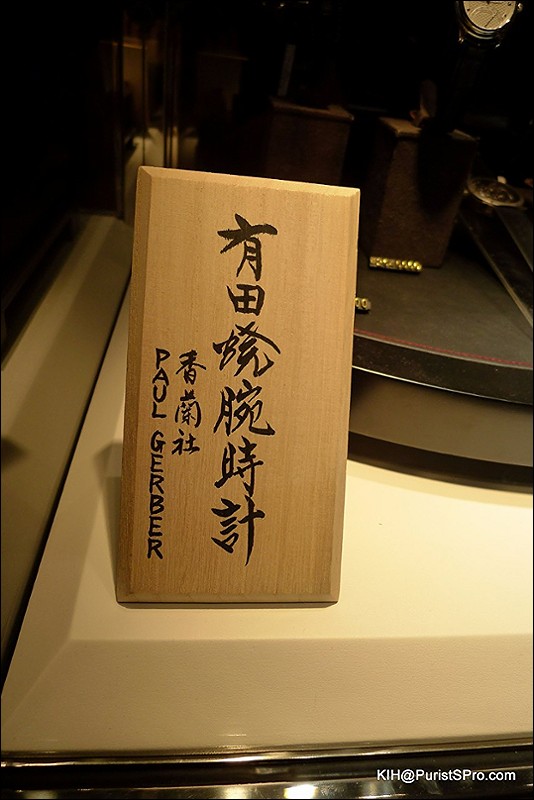 有田焼腕時計
香蘭社
PAUL GERBER
KIH@PuristSPro.com